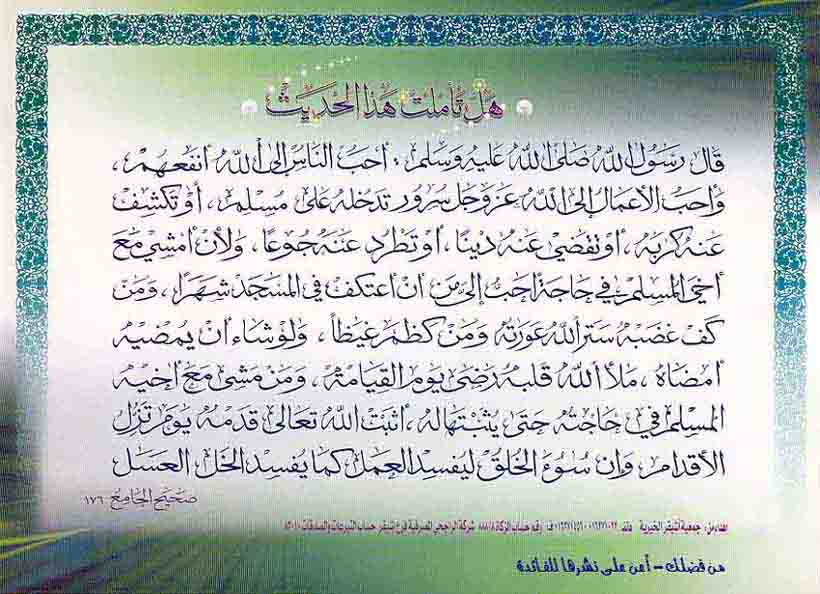 هل تأملت هذا الحديث
قال رسول الله صلى الله عليه وسلم : أحب الناس إلى الله أنفعهم ،
وأحب الأعمال إلى الله عز وجل سرور تدخله على مسلم ، أو تكشف
عنه كربه ، أو تقضي عنه دينا ، أو تطرد عنه جوعا ، ولأن أمشي مع
أخي المسلم في حاجة أحب إلي من أن اعتكف في المسجد شهرا ، ومن
كف غضبه ستر الله عورته ومن كظم غيظا ، ولو شاء أن يمضيه
أمضاه ، ملأ الله قلبه رضى يوم القيامة ، ومن مشى مع أخيه
المسلم في حاجته حتى يثبتها له ، أثبت الله تعالى قدمه يوم تزل
الأقدام ، وإن سوء الخلق ليفسد العمل كما يفسد الخل العسل
صحيح الجامع ١٧٦
جمعية أشيقر الخيرية رقم حساب الزكاة شركة الراجحي المصرفية فرع أشيقر حساب التبرعات والصدقات
من فضلك - أعن على نشرها للفائدة